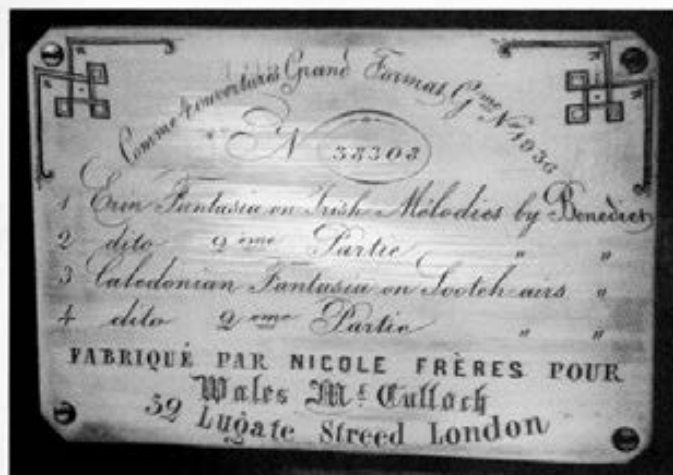 Comme 4 ouvertures Grand Format, Gme No 1936
No 38308
1 Erin Fantasia on Irish Mélodies by Benedict
2 dito 2ème Partie " "
3 Caledonian Fantasia on Scotch airs "
4 dito 2eme Partie " "
FABRIQUÉ PAR NICOLE FRÈRES POUR
Wales Mc Culloch
52 Lugate Streed London